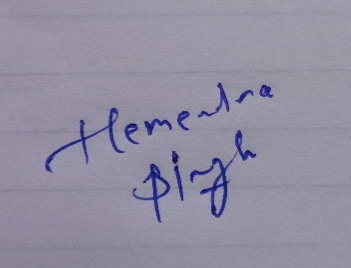 Hemendra
Singh